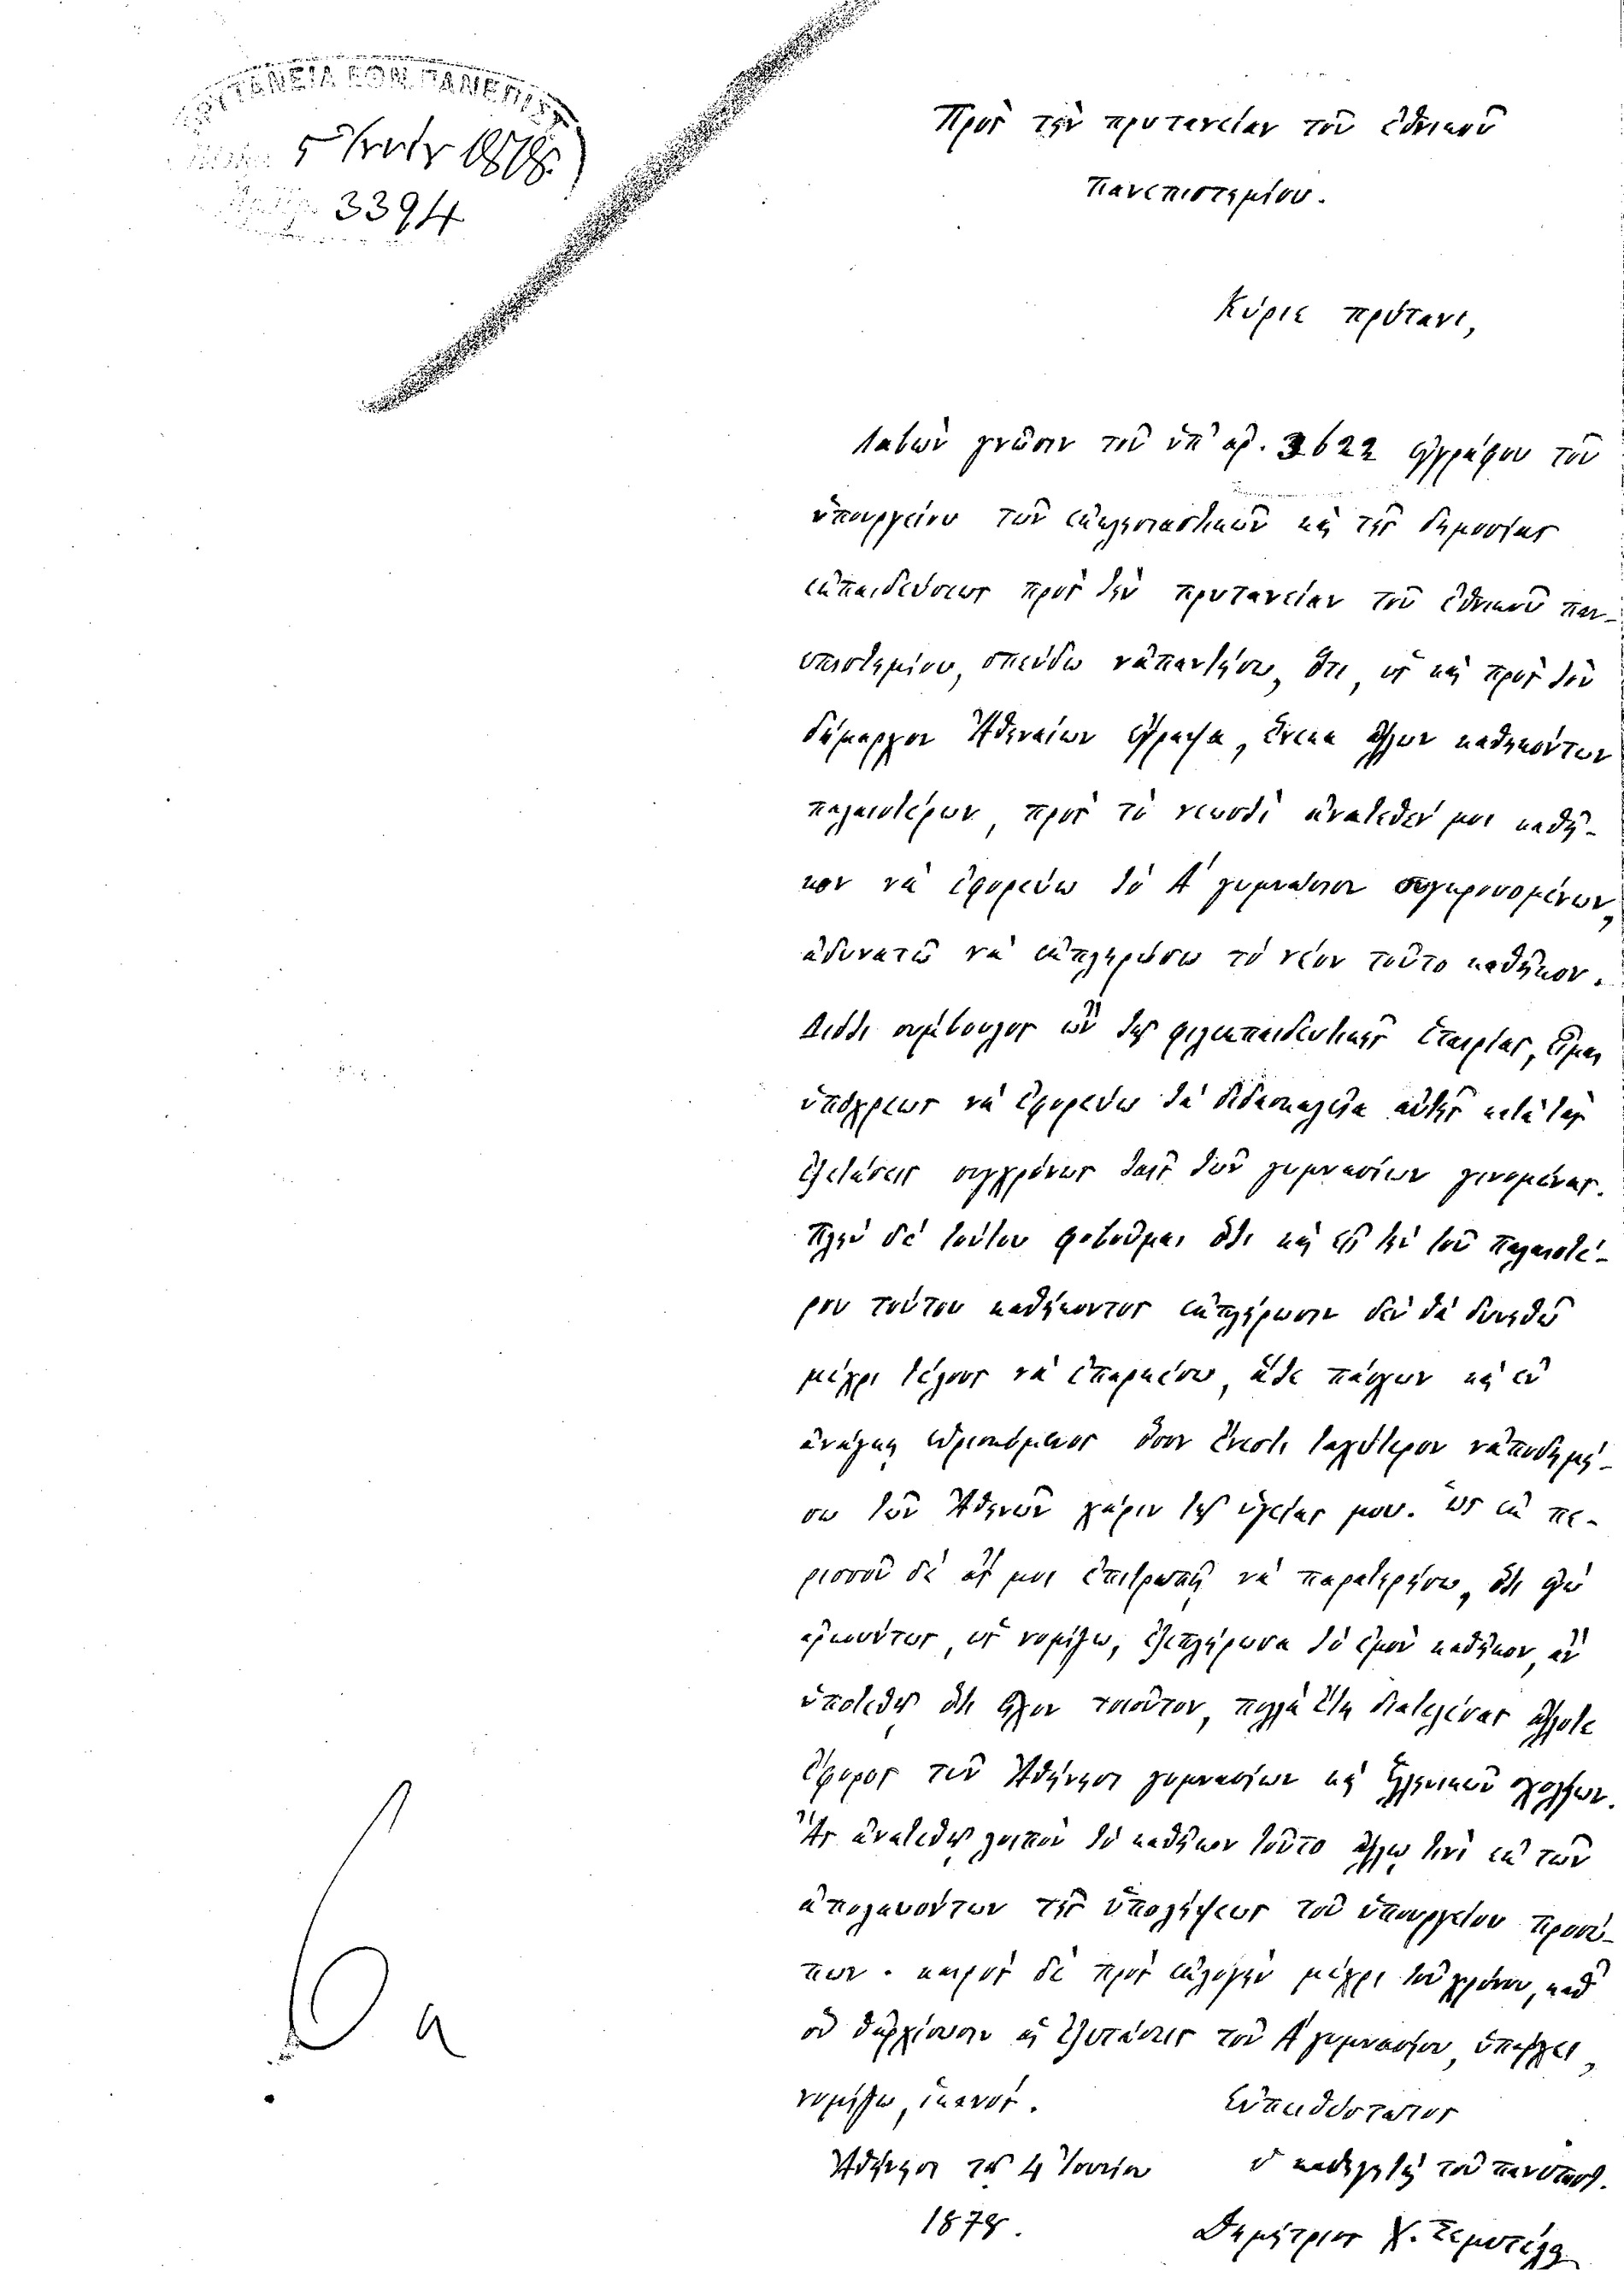 ΠΡΥΤΑΝΕΙΑ ΕΘΝ. ΠΑΝΕΠΙΣΤ
5 Ἰουνίου 1878
3394
Πρὸς τὴν πρυτανείαν τοῦ ἐθνικοῦ
πανεπιστημίου.
Κύριε πρύτανι,
Λαβὼν γνῶσιν τοῦ ὑπ' ἀρ. 3622 ἐγγράφου τοῦ
ὑπουργείου τῶν ἐκκλησιαστικῶν καὶ τῆς δημοσίας
ἐκπαιδεύσεως πρὸς τὴν πρυτανείαν τοῦ ἐθνικοῦ παν-
επιστημίου, σπεύδω ν' ἀπαντήσω, ὅτι, ὡς καὶ πρὸς τὸν
δήμαρχον Ἀθηναίων ἔγραψα, ἕνεκα ἄλλων καθηκόντων
παλαιοτέρων, πρὸς τὸ νεωστὶ ἀνατεθέν μοι καθῆ-
κον νὰ ἐφορεύω τὸ Α' γυμνάσιον συγκρουομένων,
ἀδυνατῶ νὰ ἐκπληρώσω τὸ νέον τοῦτο καθῆκον.
Διότι σύμβουλος ὢν τῆς φιλεκπαιδευτικῆς ἑταιρίας, εἶμαι
ὑπόχρεως νὰ ἐφορεύω τὰ διδασκαλεῖα αὐτῆς κατὰ τὰς
ἐξετάσεις συγχρόνως ταῖς τῶν γυμνασίων γινομένας.
Πλὴν δὲ τούτου φοβοῦμαι ὅτι καὶ εἰς τὴν τοῦ παλαιοτέ-
ρου τούτου καθήκοντος ἐκπλήρωσιν δὲν θὰ δυνηθῶ
μέχρι τέλους νὰ ἐπαρκέσω, ἅτε πάσχων καὶ ἐν
ἀνάγκῃ εὑρισκόμενος ὅσον ἔνεστι ταχύτερον ν' ἀποδημή-
σω τῶν Ἀθηνῶν χάριν τῆς ὑγείας μου. Ὡς ἐκ πε-
ρισσοῦ δὲ ἄς μοι ἐπιτραπῇ νὰ παρατηρήσω, ὅτι ἐγὼ
ἀρκούντως, ὡς νομίζω, ἐξεπλήρωσα τὸ ἐμὸν καθῆκον, ἂν
ὑποτεθῇ ὅτι εἶχον τοιοῦτον, πολλὰ ἔτη διατελέσας ἄλλοτε
ἔφορος τῶν Ἀθήνησι γυμνασίων καὶ ἑλληνικῶν σχολείων.
Ἂς ἀνατεθῇ λοιπὸν τὸ καθῆκον τοῦτο ἄλλῳ τινὶ ἐκ τῶν
ἀπολαυόντων τῆς ὑπολήψεως τοῦ ὑπουργείου προσώ-
πων· καιρὸς δὲ πρὸς ἐκλογὴν μέχρι τοῦ χρόνου, καθ'
ὃν θ' ἀρχίσωσιν αἱ ἐξετάσεις τοῦ Α' γυμνασίου, ὑπάρχει,
νομίζω, ἱκανός.
Εὐπειθέστατος
Ἀθήνησι τῇ 4 Ἰουνίου
ὁ καθηγητὴς τοῦ πανεπιστ.
1878.
Δημήτριος Χ. Σεμιτέλος
6α